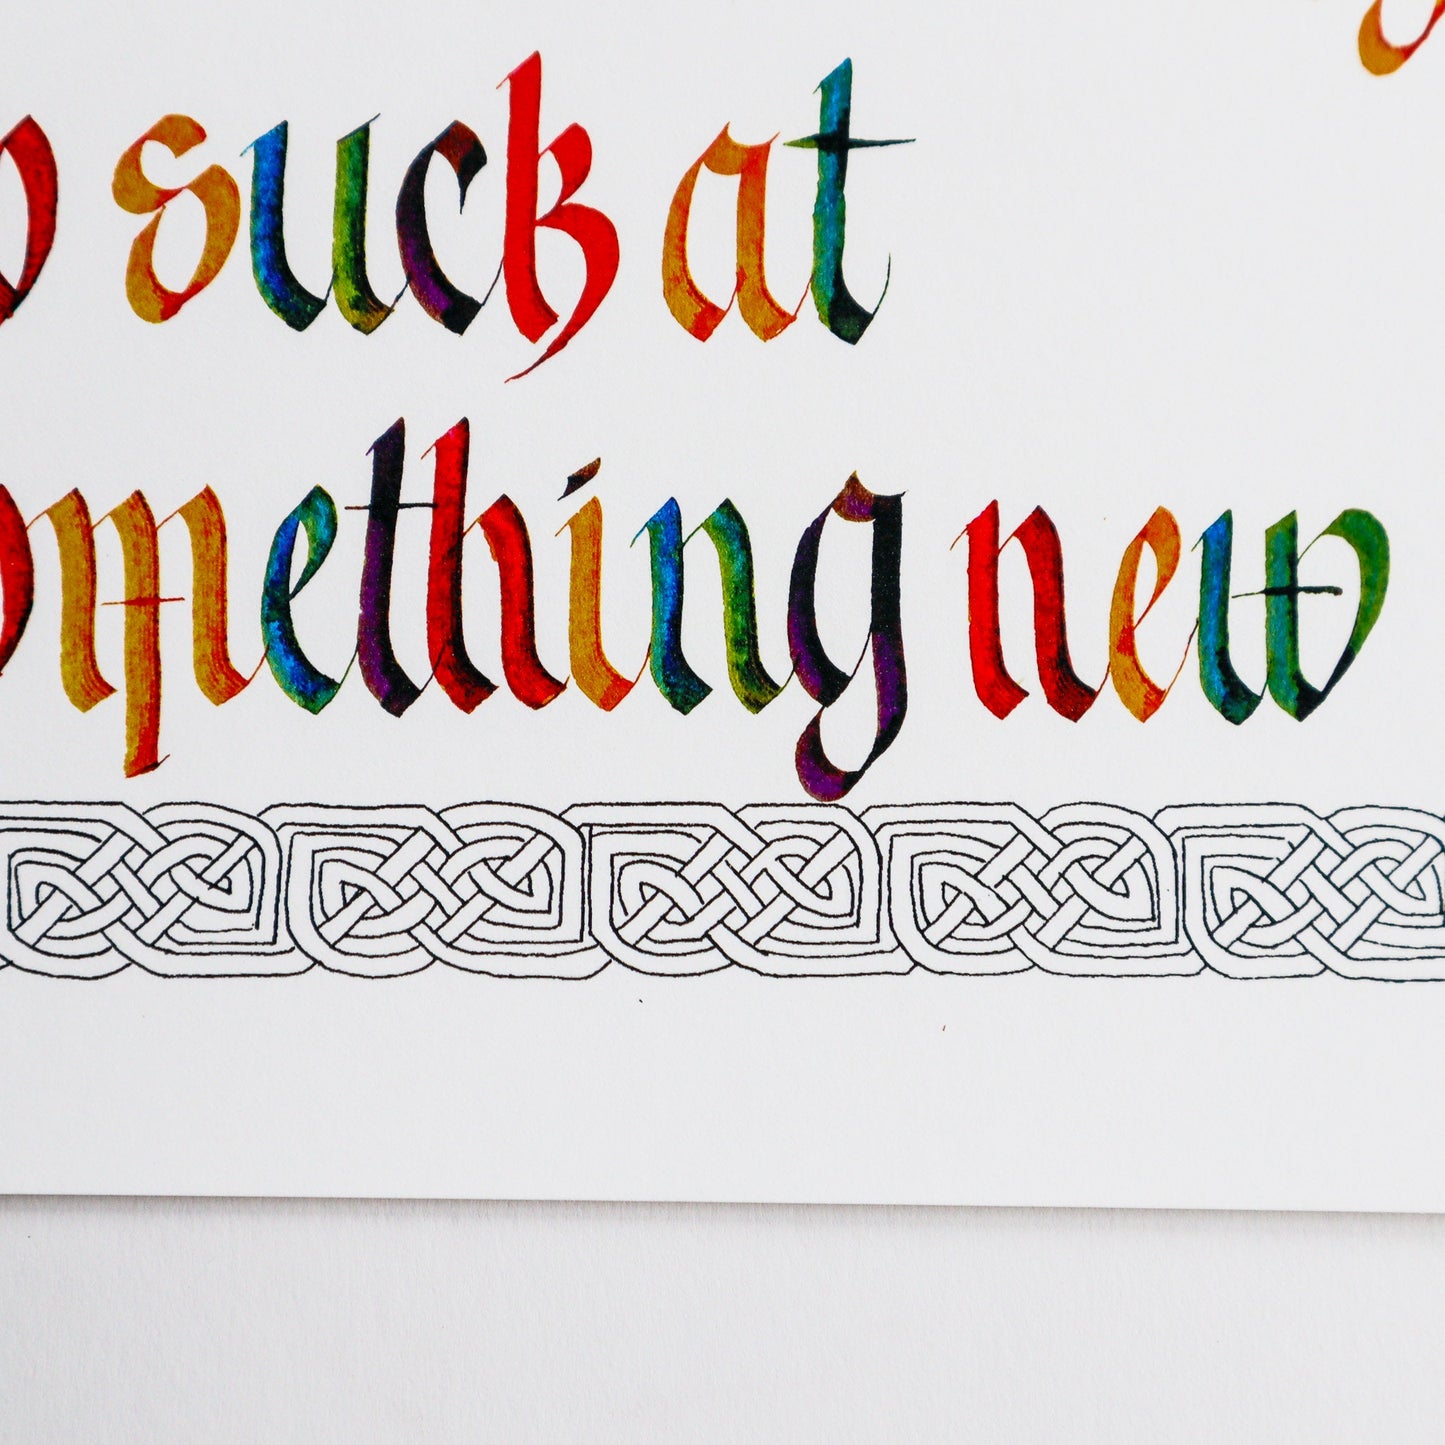 o suck at
omething new